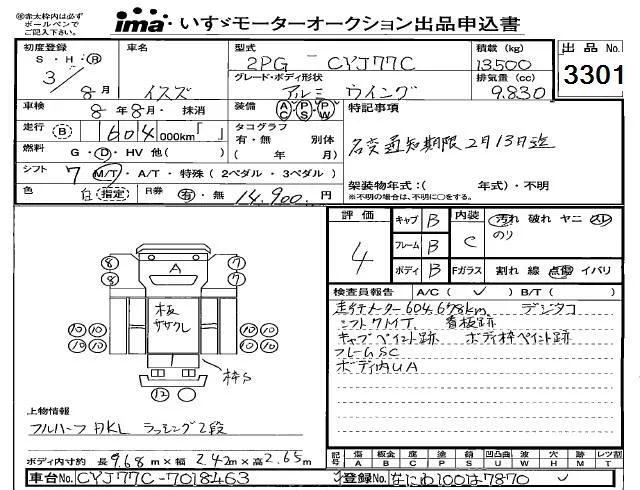 ※赤太枠内は必ず
ボールペンで
ご記入下さい。
ima いすゞモーターオークション出品申込書
初度登録 車名 型式 積載 (kg) 出品No.
S・H・R 3/8月 イスズ 2PG-CYJ77C 13500 3301
グレード・ボディ形状 排気量 (cc)
アルミ ウイング 9.830
車検 8年8月・抹消 装備 AC PS PW 特記事項
走行 (B) 604,000km「 」 タコグラフ
有・無 別体
名変通知期限2月13日迄
燃料 G・D・HV 他( ) ( 年 月)
シフト 7 M/T・A/T・特殊(2ペダル・3ペダル)
架装物年式:( 年式)・不明
※不明の場合は、不明に○をする。
色 白 指定 R券 有・無 14,900円
評価 4 キャブ B 内装 C 汚れ 破れ ヤニ スレ
のり
フレーム B
ボディ B Fガラス 割れ 線 点傷 イバリ
検査員報告 A/C( ✓ ) B/T( )
走行メーター604,678km デジタコ
シフト7MT 看板跡
キャブペイント跡 ボディ枠ペイント跡
フレームSC
ボディ内UA
A
8 7
8 7
板
ササクレ
10 10 10 10
10 10 10 10
枠S
12
上物情報
フルハーフ DKL ラッシング2段
ボディ内寸約 長9.68m×幅2.42m×高2.65m
記号 傷 A 板金 B 腐 C 塗 P 錆 S 凹凸曲 U 波 W 穴 H 跡 M レンズ割
車台No. CYJ77C-7018463 登録No. なにわ100は7870